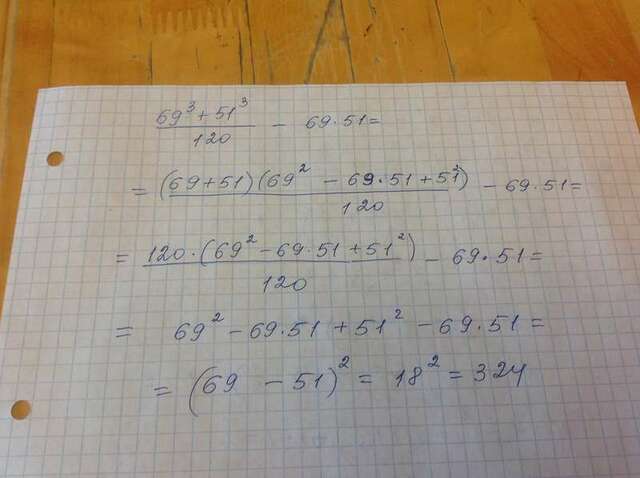 69³ + 51³ / 120 - 69·51 =
= (69+51)(69² - 69·51 + 51²) / 120 - 69·51 =
= 120·(69² - 69·51 + 51²) / 120 - 69·51 =
= 69² - 69·51 + 51² - 69·51 =
= (69 - 51)² = 18² = 324